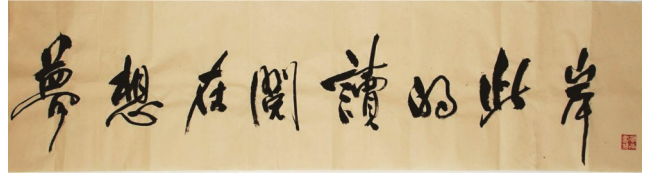 夢想在閱讀的此岸